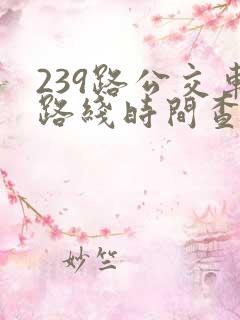 239路公交車
路綫時間查
妙竺